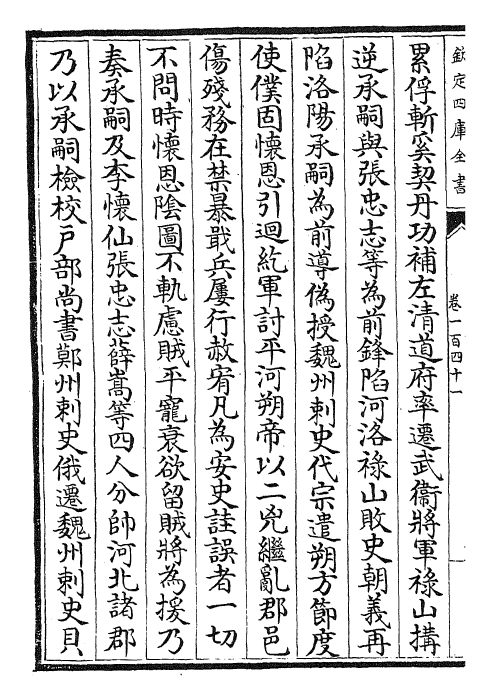 欽定四庫全書
卷一百四十一
累俘斬奚契丹功補左清道府率遷武衛將軍祿山搆
逆承嗣與張忠志等為前鋒陷河洛祿山敗史朝義再
陷洛陽承嗣為前導偽授魏州刺史代宗遣朔方節度
使僕固懷恩引迴紇軍討平河朔帝以二兇繼亂郡邑
傷殘務在禁暴戢兵屢行赦宥凡為安史詿誤者一切
不問時懷恩陰圖不軌慮賊平寵衰欲留賊將為援乃
奏承嗣及李懷仙張忠志薛嵩等四人分帥河北諸郡
乃以承嗣檢校戸部尚書鄭州刺史俄遷魏州刺史貝